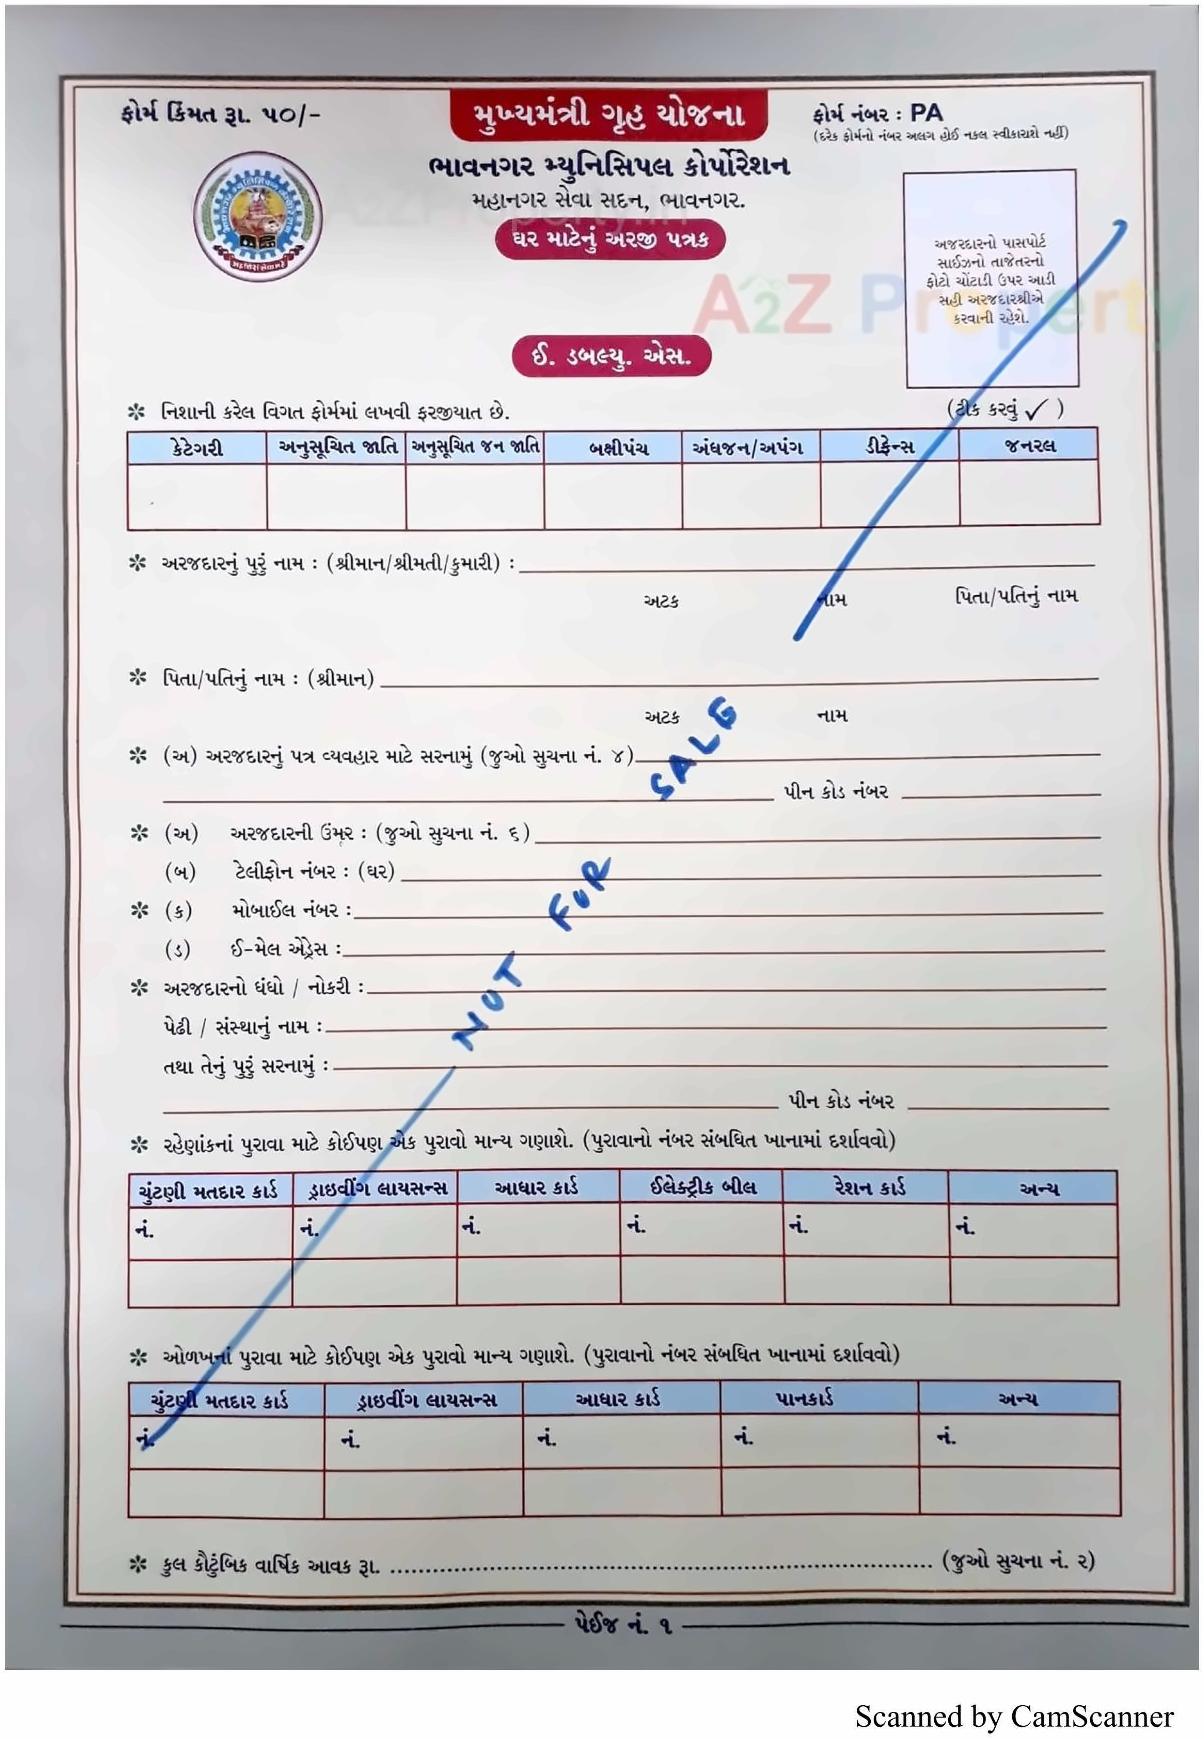 ફોર્મ કિંમત રૂા. ૫૦/-
મુખ્યમંત્રી ગૃહ યોજના
ફોર્મ નંબર : PA
(દરેક ફોર્મનો નંબર અલગ હોઈ નકલ સ્વીકારાશે નહીં)
ભાવનગર મ્યુનિસિપલ કોર્પોરેશન
મહાનગર સેવા સદન, ભાવનગર.
ઘર માટેનું અરજી પત્રક
અજરદારનો પાસપોર્ટ
સાઈઝનો તાજેતરનો
ફોટો ચોંટાડી ઉપર આડી
સહી અરજદારશ્રીએ
કરવાની રહેશે.
A2Z Property
ઈ. ડબલ્યુ. એસ.
✻ નિશાની કરેલ વિગત ફોર્મમાં લખવી ફરજીયાત છે. (ટીક કરવું ✓ )
કેટેગરી અનુસૂચિત જાતિ અનુસૂચિત જન જાતિ બક્ષીપંચ અંધજન/અપંગ ડીફેન્સ જનરલ
✻ અરજદારનું પુરું નામ : (શ્રીમાન/શ્રીમતી/કુમારી) :
અટક નામ પિતા/પતિનું નામ
✻ પિતા/પતિનું નામ : (શ્રીમાન)
અટક નામ
✻ (અ) અરજદારનું પત્ર વ્યવહાર માટે સરનામું (જુઓ સુચના નં. ૪)
પીન કોડ નંબર
✻ (અ) અરજદારની ઉંમર : (જુઓ સુચના નં. ૬)
(બ) ટેલીફોન નંબર : (ઘર)
✻ (ક) મોબાઈલ નંબર :
(ડ) ઈ-મેલ એડ્રેસ :
✻ અરજદારનો ધંધો / નોકરી :
પેઢી / સંસ્થાનું નામ :
તથા તેનું પુરું સરનામું :
પીન કોડ નંબર
NOT FOR SALE
✻ રહેણાંકનાં પુરાવા માટે કોઈપણ એક પુરાવો માન્ય ગણાશે. (પુરાવાનો નંબર સંબધિત ખાનામાં દર્શાવવો)
ચુંટણી મતદાર કાર્ડ ડ્રાઇવીંગ લાયસન્સ આધાર કાર્ડ ઈલેક્ટ્રીક બીલ રેશન કાર્ડ અન્ય
નં. નં. નં. નં. નં. નં.
✻ ઓળખનાં પુરાવા માટે કોઈપણ એક પુરાવો માન્ય ગણાશે. (પુરાવાનો નંબર સંબધિત ખાનામાં દર્શાવવો)
ચુંટણી મતદાર કાર્ડ ડ્રાઇવીંગ લાયસન્સ આધાર કાર્ડ પાનકાર્ડ અન્ય
નં. નં. નં. નં. નં.
✻ કુલ કૌટુંબિક વાર્ષિક આવક રૂા. .................... (જુઓ સુચના નં. ૨)
પેઈજ નં. ૧
Scanned by CamScanner